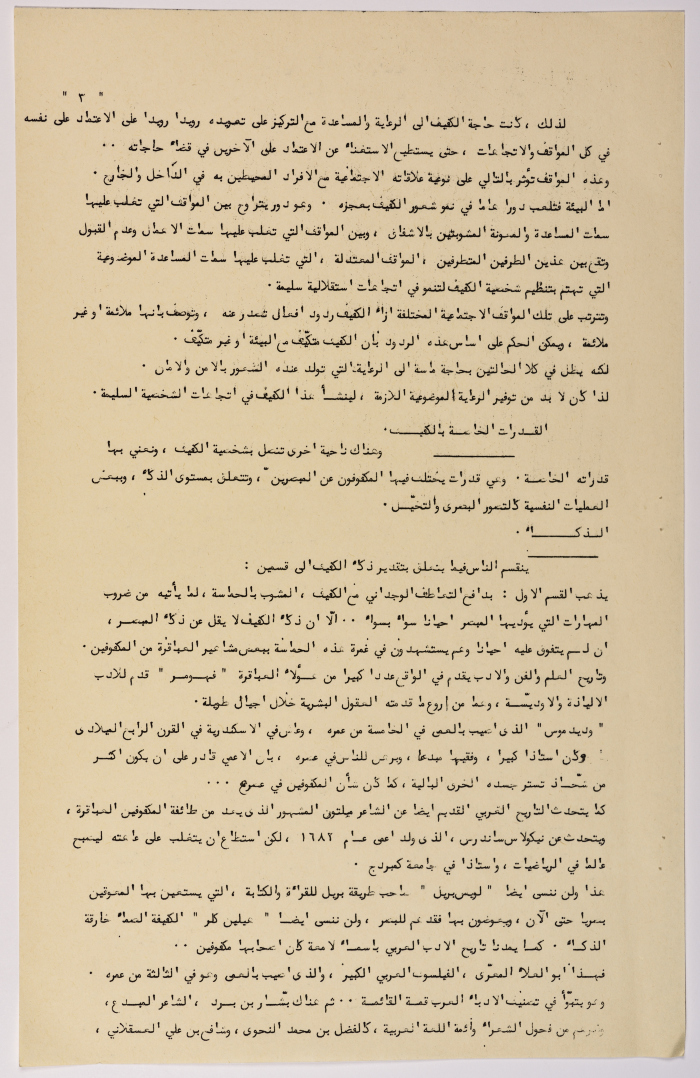 " ٣ "
لذلك ، كانت حاجة الكفيف الى الرعاية والمساعدة مع التركيز على تعويده رويدا رويدا على الاعتماد على نفسه
في كل المواقف والاتجاهات ، حتى يستطيع الاستغناء عن الاعتماد على الآخرين في قضاء حاجاته ٠٠
وهذه المواقف تؤثر بالتالي على نوعية علاقاته الاجتماعية مع الافراد المحيطين به في الداخل والخارج ٠
اما البيئة فتلعب دورا هاما في نمو شعور الكفيف بعجزه ٠ وهو دور يتراوح بين المواقف التي تغلب عليها
سمات المساعدة والمعونة المشوبتين بالاشفاق ، وبين المواقف التي تغلب عليها سمات الاهمال وعدم القبول
وتقع بين هذين الطرفين المتطرفين ، المواقف المعتدلة ، التي تغلب عليها سمات المساعدة الموضوعية
التي تهتم بتنظيم شخصية الكفيف لتنمو في اتجاهات استقلالية سليمة ٠
وتترتب على تلك المواقف الاجتماعية المختلفة ازاء الكفيف ردود افعال تصدر عنه ، وتوصف بانها ملائمة او غير
ملائمة ، ويمكن الحكم على اساس هذه الردود بأن الكفيف متكيّف مع البيئة او غير متكيّف ٠
لكنه يظل في كلا الحالتين بحاجة ماسة الى الرعاية التي تولد عنده الشعور بالامن والامان ٠
لذا كان لا بد من توفير الرعاية الموضوعية اللازمة ، لينشأ هذا الكفيف في اتجاهات الشخصية السليمة ٠
القدرات الخاصة بالكفيف ٠
وهناك ناحية اخرى تتصل بشخصية الكفيف ، ونعني بها
قدراته الخاصة ٠ وهي قدرات يختلف فيها المكفوفون عن المبصرين ، وتتعلق بمستوى الذكاء ، وببعض
العمليات النفسية كالتصور البصرى والتخيّل ٠
الذكاء ٠
ينقسم الناس فيما يتعلق بتقدير ذكاء الكفيف الى قسمين :
يذهب القسم الاول : بدافع التعاطف الوجداني مع الكفيف ، المشوب بالحماسة ، لما يأتيه من ضروب
المهارات التي يؤديها المبصر احيانا سواء بسواء ٠٠ الّا ان ذكاء الكفيف لا يقل عن ذكاء المبصر ،
ان لم يتفوق عليه احيانا وهم يستشهدون في غمرة هذه الحماسة ببعض مشاهير العباقرة من المكفوفين ٠
وتاريخ العلم والفن والادب يقدم في الواقع عددا كبيرا من هؤلاء العباقرة " فهومر " قدم للادب
الالياذة والاوديسّة ، وهما من اروع ما قدمته العقول البشرية خلال اجيال طويلة ٠
" وديدموس " الذى اصيب بالعمى في الخامسة من عمره ، وعاش في الاسكندرية في القرن الرابع الميلادى
وكان استاذا كبيرا ، وفقيها مبدعا ، وبرهن للناس في عصره ، بأن الاعمى قادر على ان يكون اكثر
من شحاذ تستر جسده الخرق البالية ، كما كان شأن المكفوفين في عصره ٠٠٠
كما يتحدث التاريخ الغربي القديم ايضا عن الشاعر ميلتون المشهور الذى يعد من طائفة المكفوفين العباقرة ،
ويتحدث عن نيكولاس ساندرس ، الذى ولد اعمى عام ١٦٨٢ ، لكن استطاع ان يتغلب على عاهته ليصبح
عالما في الرياضيات ، واستاذا في جامعة كمبردج ٠
هذا ولن ننسى ايضا " لويس بريل " صاحب طريقة بريل للقراءة والكتابة ، التي يستعين بها المعوقين
بصريا حتى الآن ، ويعوضون بها فقدهم للبصر ، ولن ننسى ايضا " هيلين كلر " الكفيفة الصماء خارقة
الذكاء ٠ كما يمدنا تاريخ الادب العربي باسماء لامعة كان اصحابها مكفوفين ٠٠
فهذا ابو العلاء المعرّى ، الفيلسوف العربي الكبير ، والذى اصيب بالعمى وهو في الثالثة من عمره ٠
وهو يتبوّأ في تصنيف الادباء العرب قمة القائمة ٠٠ ثم هناك بشّار بن برد ، الشاعر المبدع ،
وغيرهم من فحول الشعراء وأئمة اللغة العربية ، كالفضل بن محمد النحوى ، وشافع بن علي العسقلاني ،